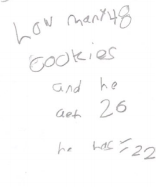 How many 48
cookies
and he
ate 26
he has = 22